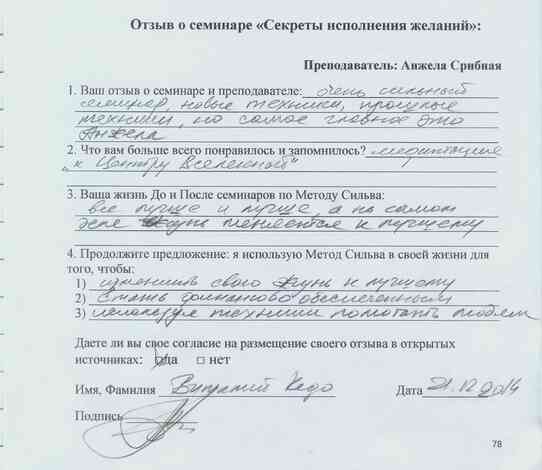 Отзыв о семинаре «Секреты исполнения желаний»:
Преподаватель: Анжела Срибная
1. Ваш отзыв о семинаре и преподавателе: очень сильный
семинар, новые техники, прошлые
техники, но самое главное это
Анжела
2. Что вам больше всего понравилось и запомнилось? медитация
„к Центру Вселенной"
3. Ваша жизнь До и После семинаров по Методу Сильва:
все лучше и лучше, а на самом
деле жизнь меняется к лучшему
4. Продолжите предложение: я использую Метод Сильва в своей жизни для
того, чтобы:
1) изменить свою жизнь к лучшему
2) стать финансово обеспеченным
3) используя техники помогать людям
Даете ли вы свое согласие на размещение своего отзыва в открытых
источниках: да нет
Имя, Фамилия Виталий Дата 21.12.2014
Подпись
78